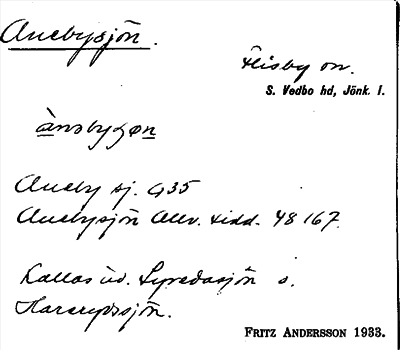 Anebysjön.
Flisby sn.
S. Vedbo hd, Jönk. l.
Aneby sj. G35
Anebysjön Allv. tidd. 48 167.
Kallas äv. Lyredasjön o.
Hareryssjön.
FRITZ ANDERSSON 1933.